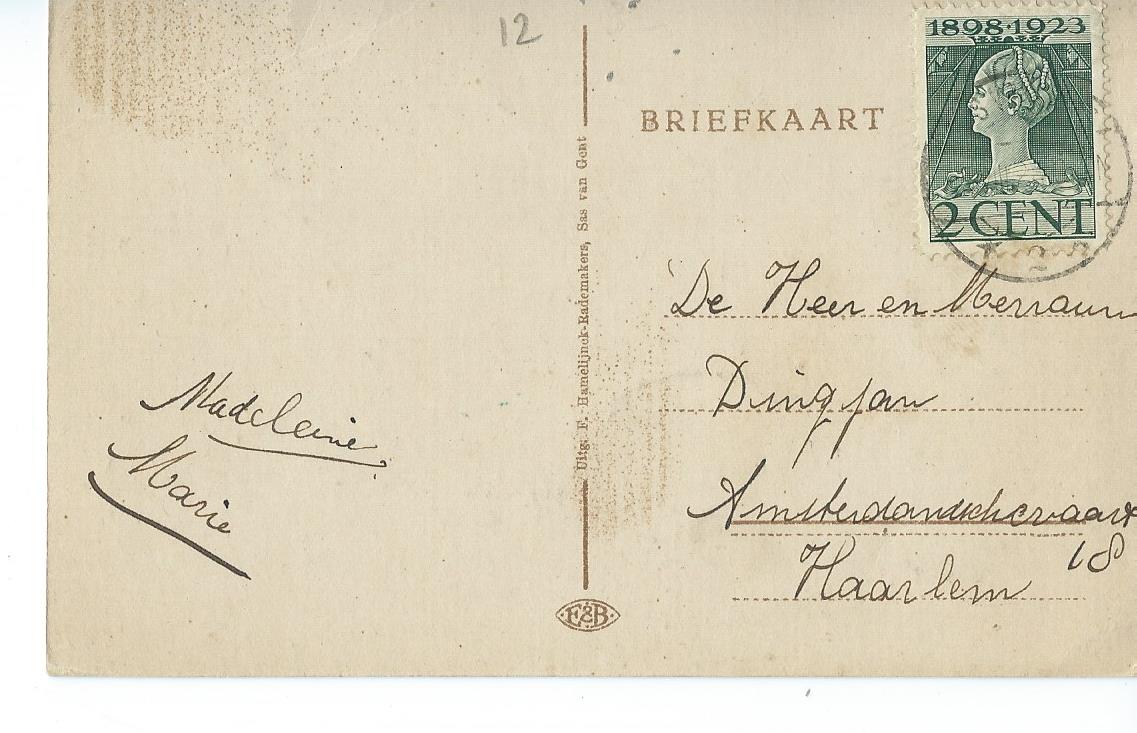 12
1898·1923
2 CENT
BRIEFKAART
De Heer en Merrauw
Dingjan
Amsterdamschevaart
18
Haarlem
Madeleine
Marie
Uitg. F. Hamelijnck-Rademakers, Sas van Gent
E&B